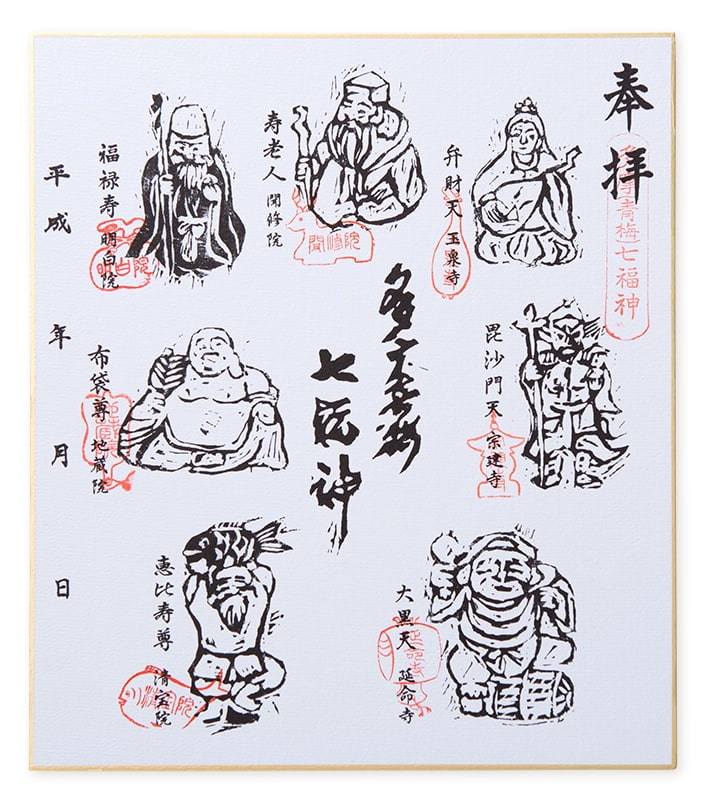 奉拝
多摩青梅七福神
弁財天 玉泉寺
寿老人 聞修院
聞修院
福禄寿 明白院
明白院
毘沙門天 宗建寺
多摩青梅
七福神
布袋尊 地蔵院
大黒天 延命寺
延命寺
恵比寿尊 清宝院
清宝院
平成 年 月 日